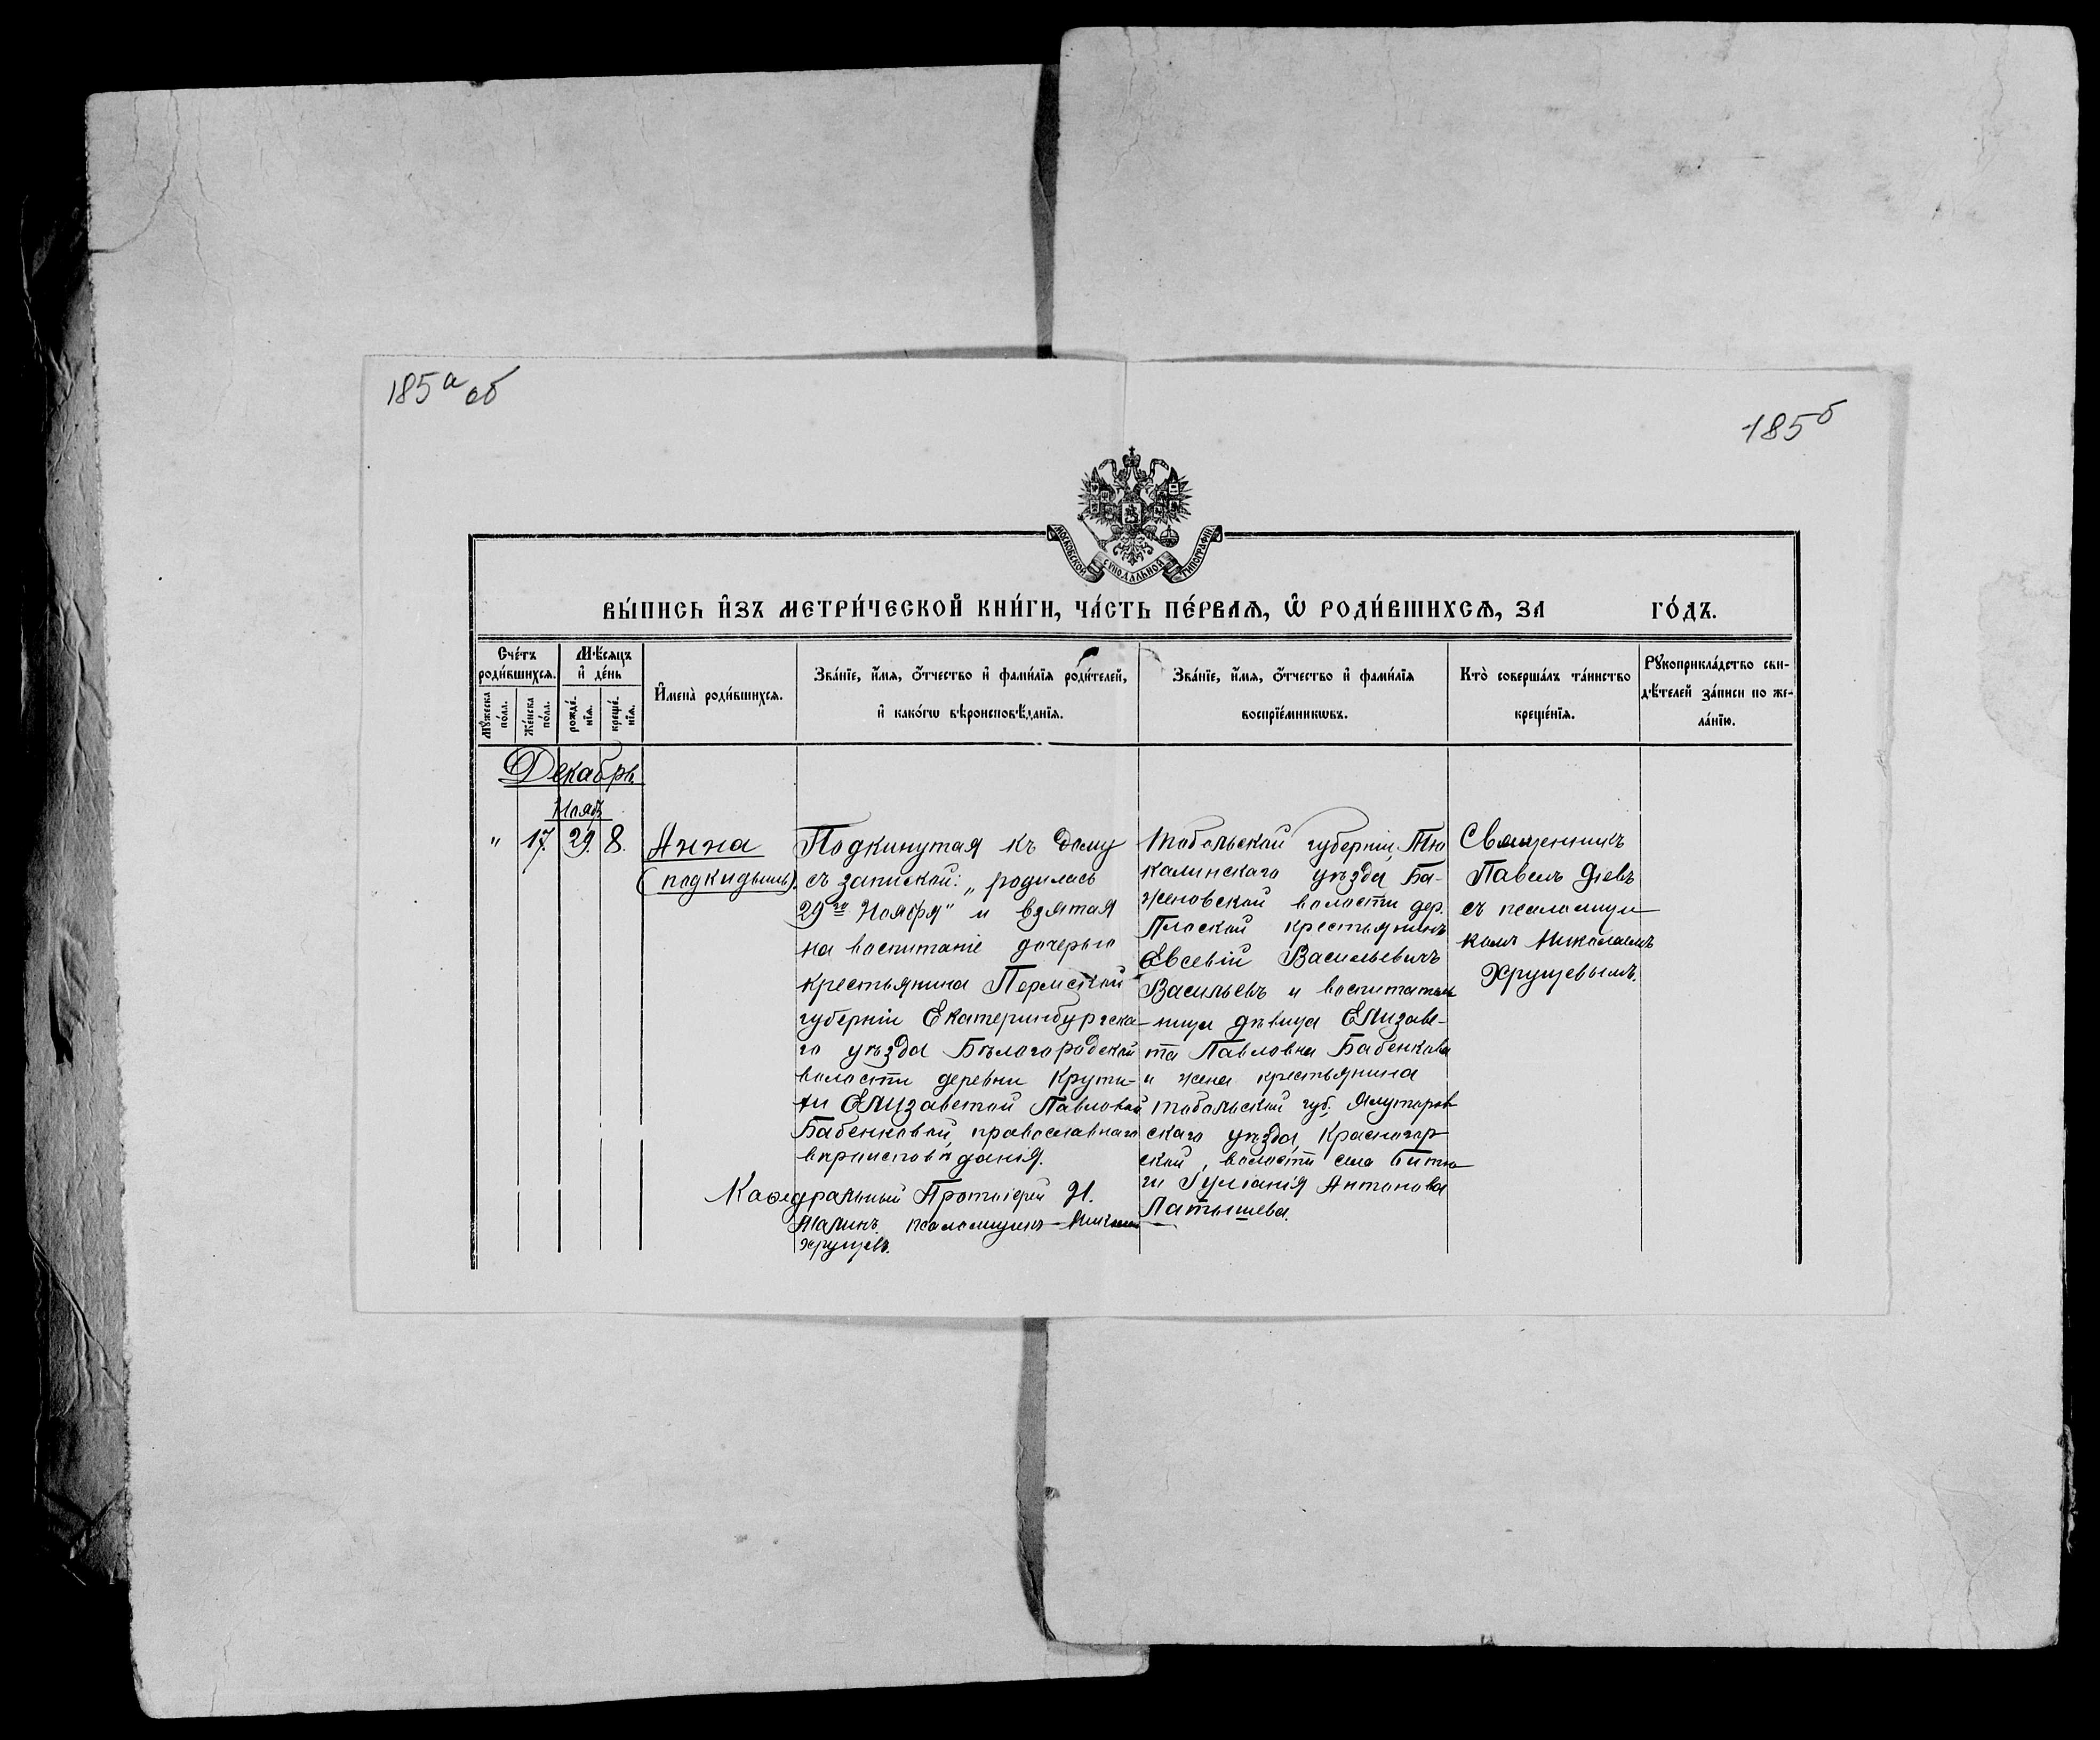 185а об
185б
МОСКОВСКОЙ СѴНОДАЛЬНОЙ ТИПОГРАФІИ.
ВЫ́ПИСЬ И҆ЗЪ МЕТРИ́ЧЕСКОЙ КНИ́ГИ, ЧА́СТЬ ПЕ́РВАѦ, Ѡ҆ РОДИ́ВШИХСѦ, ЗА ГО́ДЪ.
Сче́тъ
роди́вшихсѧ.
Мꙋ́жеска
по́ла.
Же́нска
по́ла.
Мѣ́сяцъ
и҆ де́нь
рожде́-
нїѧ.
креще́-
нїѧ.
И҆мена̀ роди́вшихсѧ.
Зва́нїе, и҆́мѧ, ѻ҆́тчество и҆ фами́лїѧ роди́телей,
и҆ како́гѡ вѣроисповѣ́данїѧ.
Зва́нїе, и҆́мѧ, ѻ҆́тчество и҆ фами́лїѧ
воспрїе́мникѡвъ.
Кто̀ соверша́лъ та́инство
креще́нїѧ.
Рꙋкоприкла́дство сви-
дѣ́телей за́писи по же-
ла́нїю.
Декабрь
Нояб.
" 17. 29. 8.
Анна
(подкидышъ).
Подкинутая къ дому
съ запиской: „родилась
29го Ноября" и взятая
на воспитаніе дочерью
крестьянина Пермской
губерніи Екатеринбургска-
го уѣзда Бѣлогородской
волости деревни Крути-
хи Елизаветой Павловой
Бабенковой, православнаго
вѣроисповѣданія.
Каѳедральный Протоіерей И.
псаломщикъ Николай
Хрущевъ.
Тобольской губерніи, Тю
калинскаго уѣзда Ба-
женовской волости дер.
Плоской крестьянинъ
Евсевій Васильевичъ
Васильевъ и воспитатель
ница дѣвица Елизаве-
та Павловна Бабенкова
и жена крестьянина
Тобольской губ. Ялуторов
скаго уѣзда, Красногор
ской, волости села
Іуліанія Антонова
Латышева.
Священникъ
Павелъ Діевъ
съ псаломщи
комъ Николаемъ
Хрущевымъ.